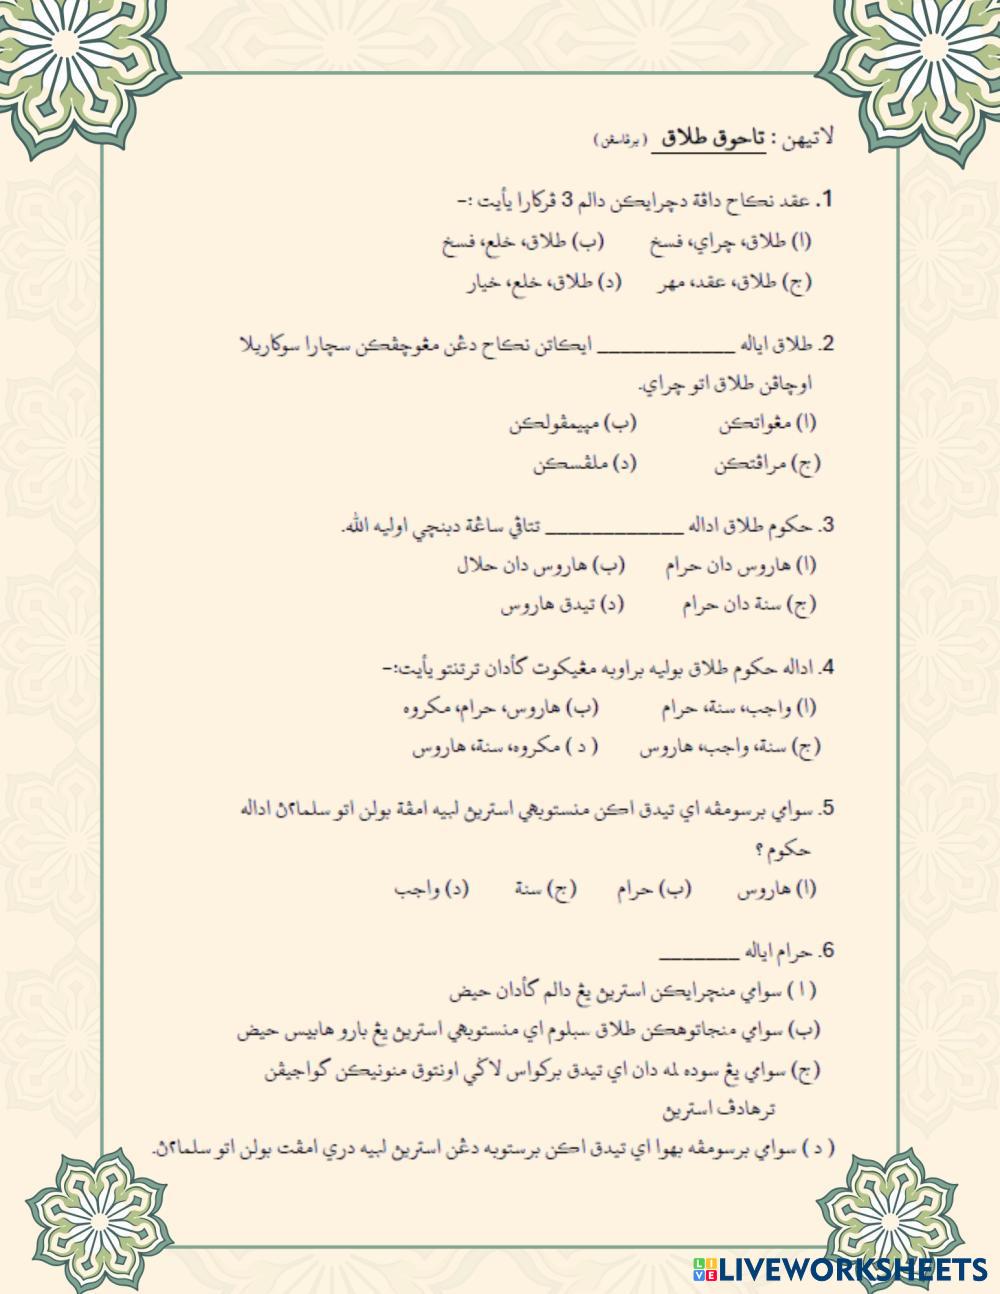 لاتيهن : تاحوق طلاق (برڤاسڠن)
1. عقد نكاح داڤة دچرايكن دالم 3 ڤركارا يأيت :-
(ا) طلاق، چراي، فسخ (ب) طلاق، خلع، فسخ
(ج) طلاق، عقد، مهر (د) طلاق، خلع، خيار
2. طلاق اياله ____________ ايكاتن نكاح دڠن مڠوچڤكن سچارا سوكاريلا
اوچاڤن طلاق اتو چراي.
(ا) مڠواتكن (ب) مڽيمڤولكن
(ج) مراڤتكن (د) ملڤسكن
3. حكوم طلاق اداله ____________ تتاڤي ساڠة دبنچي اوليه الله.
(ا) هاروس دان حرام (ب) هاروس دان حلال
(ج) سنة دان حرام (د) تيدق هاروس
4. اداله حكوم طلاق بوليه براوبه مڠيكوت كأدان ترتنتو يأيت:-
(ا) واجب، سنة، حرام (ب) هاروس، حرام، مكروه
(ج) سنة، واجب، هاروس ( د ) مكروه، سنة، هاروس
5. سوامي برسومڤه اي تيدق اكن منستوبهي استرين لبيه امڤة بولن اتو سلما٢ڽ اداله
حكوم ؟
(ا) هاروس (ب) حرام (ج) سنة (د) واجب
6. حرام اياله _______
( ا ) سوامي منچرايكن استرين يڠ دالم كأدان حيض
(ب) سوامي منجاتوهكن طلاق سبلوم اي منستوبهي استرين يڠ بارو هابيس حيض
(ج) سوامي يڠ سوده لمه دان اي تيدق بركواس لاݢي اونتوق منونيكن كواجيڤن
ترهادڤ استرين
( د ) سوامي برسومڤه بهوا اي تيدق اكن برستوبه دڠن استرين لبيه دري امڤت بولن اتو سلما٢ڽ.
LIVEWORKSHEETS